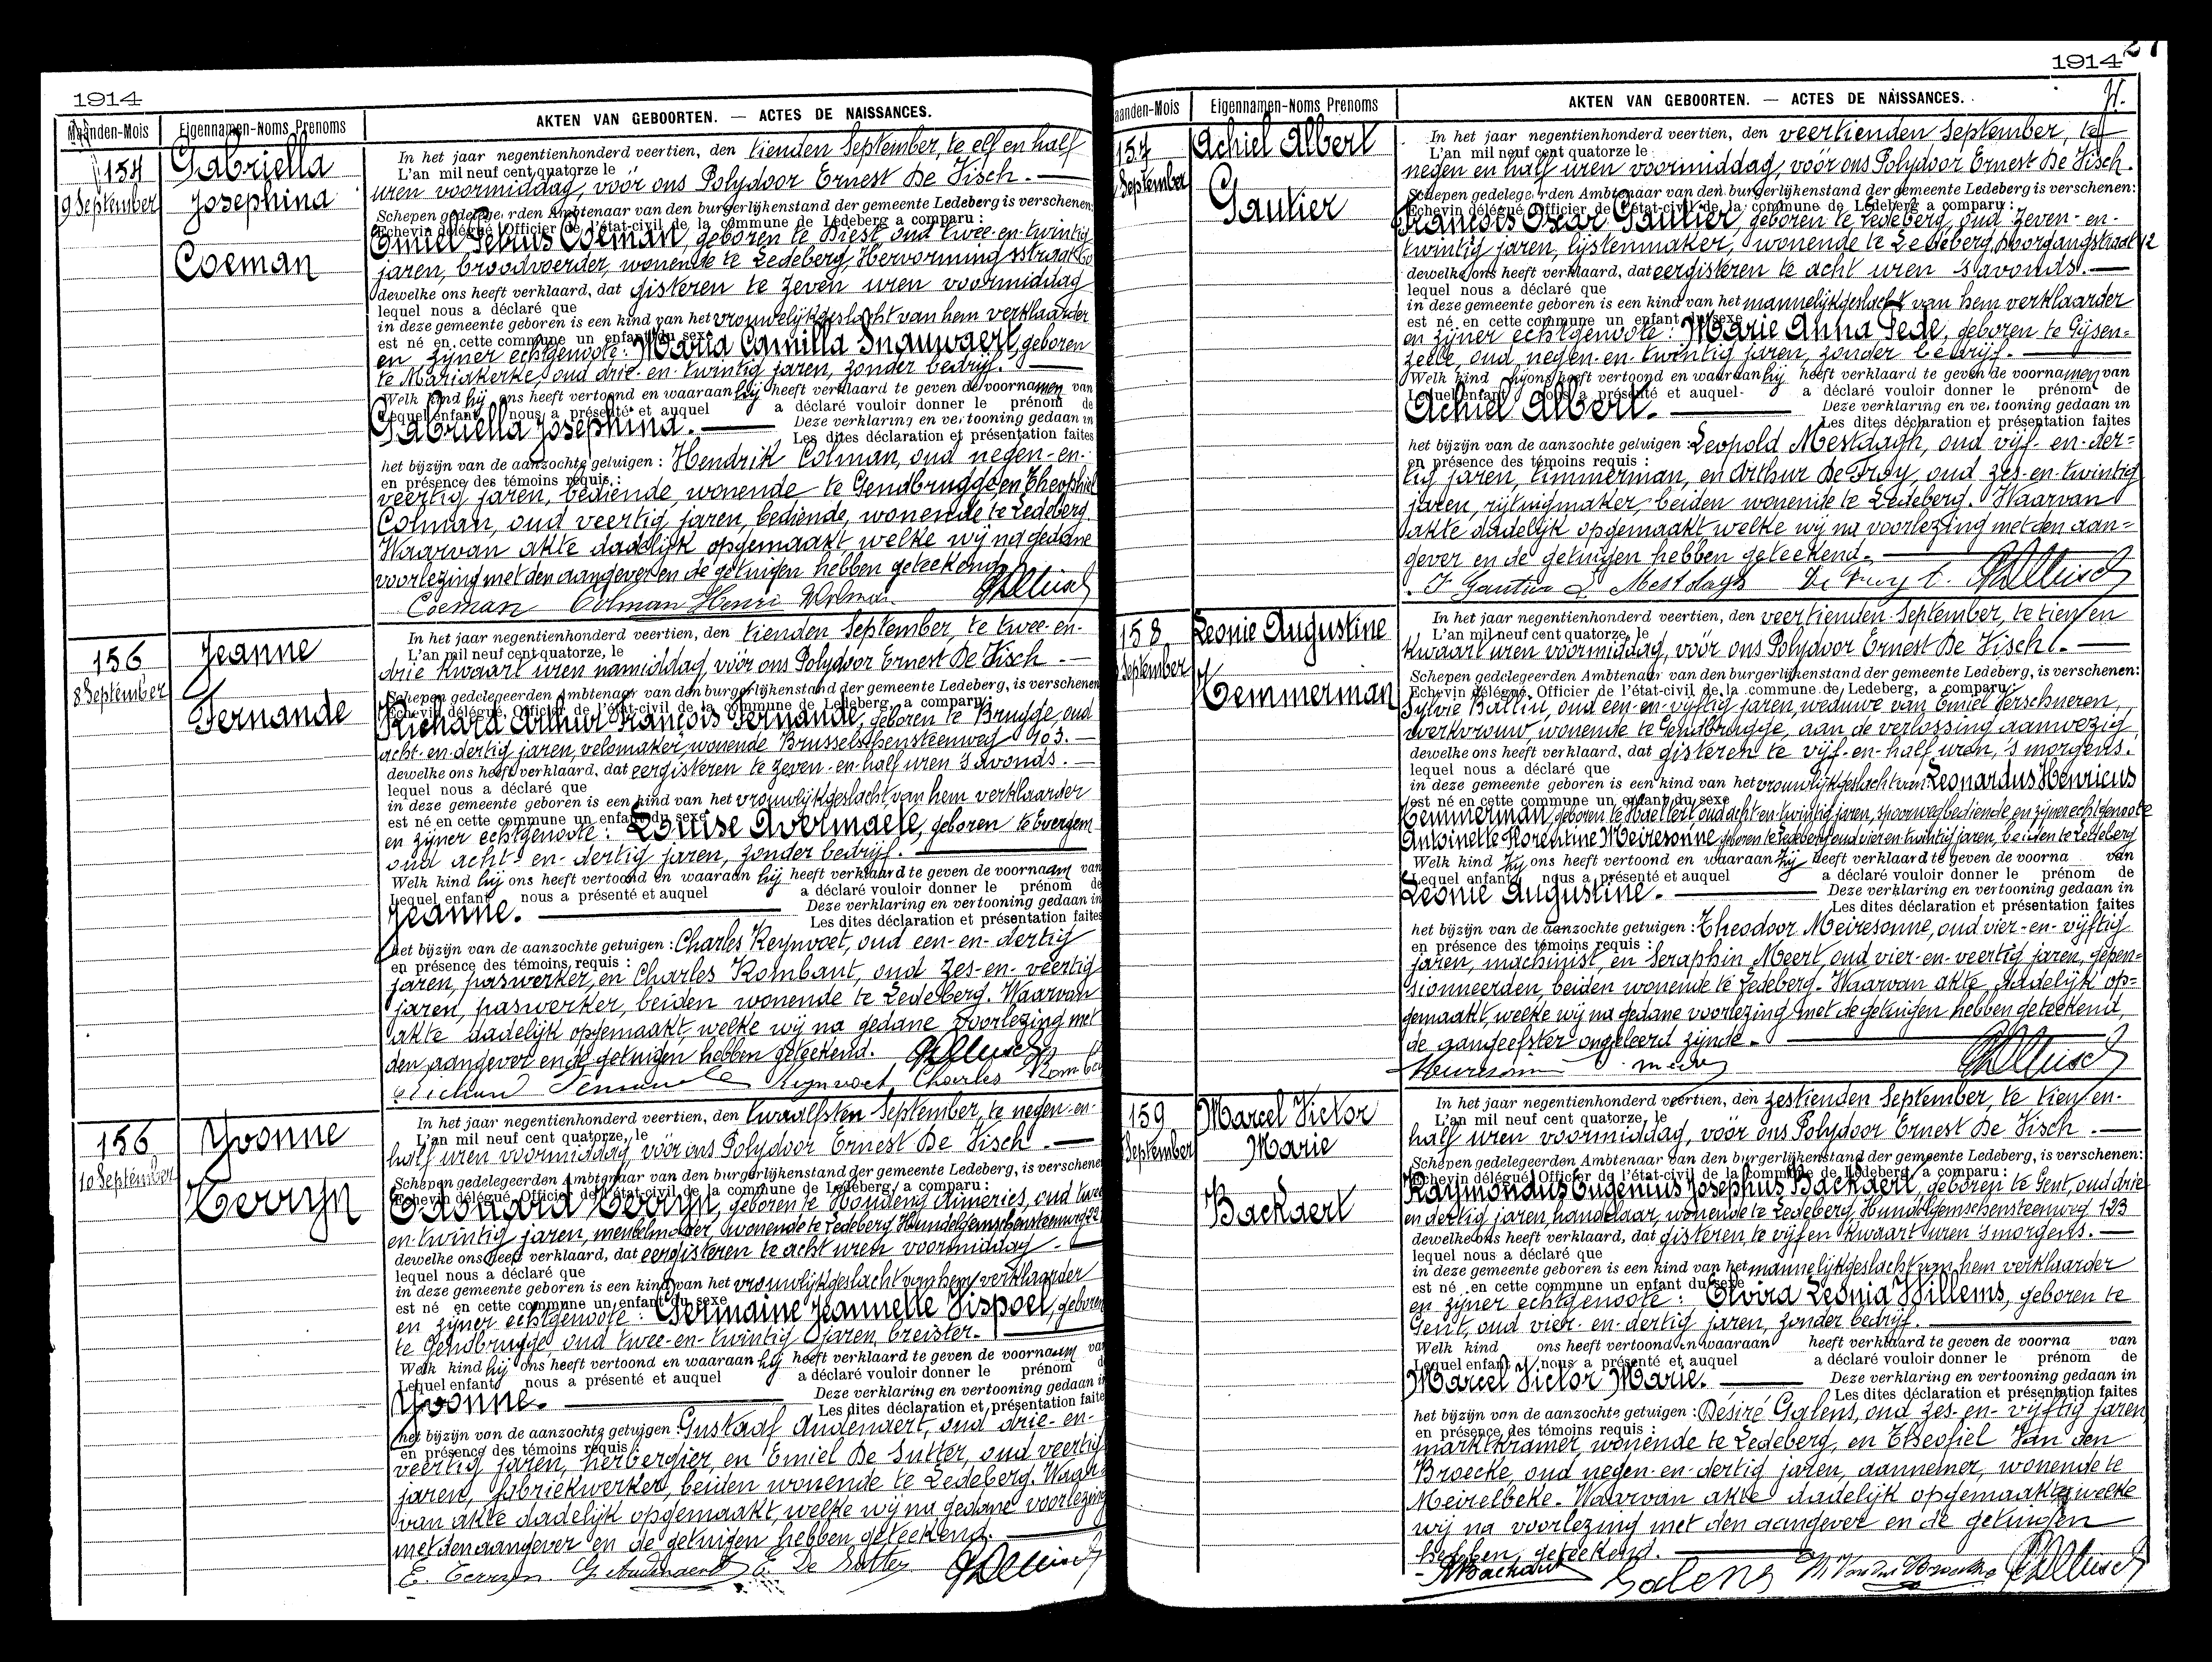 1914
Maanden-Mois
Eigennamen-Noms Prenoms
AKTEN VAN GEBOORTEN. — ACTES DE NAISSANCES.
154
9 September
Gabriella
Josephina
Coeman
In het jaar negentienhonderd veertien, den tienden September, te elf en half
L'an mil neuf cent quatorze le
uren voormiddag, vóór ons Polydoor Ernest De Visch. —
Schepen gedelege rden Ambtenaar van den burgerlijkenstand der gemeente Ledeberg is verschenen:
Echevin délégué Officier de l'état-civil de la commune de Ledeberg a comparu :
Emiel Petrus Coeman, geboren te Diest, oud twee-en-twintig
jaren, broodvoerder, wonende te Ledeberg, Hervormingsstraat
dewelke ons heeft verklaard, dat gisteren te zeven uren voormiddag
lequel nous a déclaré que
in deze gemeente geboren is een kind van het vrouwelijkgeslacht van hem verklaarder
est né en cette commune un enfant du sexe
en zijner echtgenoote: Maria Camilla Snauwaert, geboren
te Mariakerke, oud drie-en-twintig jaren, zonder bedrijf. —
Welk kind hij ons heeft vertoond en waaraan hij heeft verklaard te geven de voornamen van
Lequel enfant nous a présenté et auquel a déclaré vouloir donner le prénom de
Gabriella Josephina. — Deze verklaring en vertooning gedaan in
Les dites déclaration et présentation faites
het bijzijn van de aanzochte getuigen : Hendrik Colman, oud negen-en-
en présence des témoins requis :
veertig jaren, bediende, wonende te Gendbrugge en Theophiel
Colman, oud veertig jaren, bediende, wonende te Ledeberg.
Waarvan akte dadelijk opgemaakt welke wij na gedane
voorlezing met den aangever en de getuigen hebben geteekend.
Coeman Colman Henri
156
8 September
Jeanne
Fernande
In het jaar negentienhonderd veertien, den tienden September, te twee-en-
L'an mil neuf cent quatorze, le
drie kwaart uren namiddag, vóór ons Polydoor Ernest De Visch. —
Schepen gedelegeerden Ambtenaar van den burgerlijkenstand der gemeente Ledeberg, is verschenen
Echevin délégué, Officier de l'état-civil de la commune de Ledeberg, a comparu :
Richard Arthur François Fernande, geboren te Brugge, oud
acht-en-dertig jaren, velomaker, wonende Brusselschensteenweg 103. —
dewelke ons heeft verklaard, dat eergisteren te zeven-en-half uren 's avonds. —
lequel nous a déclaré que
in deze gemeente geboren is een kind van het vrouwlijkgeslacht van hem verklaarder
est né en cette commune un enfant du sexe
en zijner echtgenoote: Louise Avermaete, geboren te Evergem
oud acht-en-dertig jaren, zonder bedrijf. —
Welk kind hij ons heeft vertoond en waaraan hij heeft verklaard te geven de voornaam van
Lequel enfant nous a présenté et auquel a déclaré vouloir donner le prénom de
Jeanne. — Deze verklaring en vertooning gedaan in
Les dites déclaration et présentation faites
het bijzijn van de aanzochte getuigen : Charles Reynvoet, oud een-en-dertig
en présence des témoins requis :
jaren, paswerker, en Charles Rombaut, oud zes-en-veertig
jaren, paswerker, beiden wonende te Ledeberg. Waarvan
akte dadelijk opgemaakt, welke wij na gedane voorlezing met
den aangever en de getuigen hebben geteekend.
Richard Fernande Reynvoet Charles
156
10 September
Yvonne
Terryn
In het jaar negentienhonderd veertien, den twaalfsten September, te negen-en-
L'an mil neuf cent quatorze, le
half uren voormiddag, vóór ons Polydoor Ernest De Visch. —
Schepen gedelegeerden Ambtenaar van den burgerlijkenstand der gemeente Ledeberg, is verschenen
Echevin délégué, Officier de l'état-civil de la commune de Ledeberg, a comparu :
Edouard Terryn, geboren te Houdeng Aimeries, oud twee
en-twintig jaren, meubelmaker, wonende te Ledeberg Hundelgemschensteenweg 22
dewelke ons heeft verklaard, dat eergisteren te acht uren voormiddag. —
lequel nous a déclaré que
in deze gemeente geboren is een kind van het vrouwlijkgeslacht van hem verklaarder
est né en cette commune un enfant du sexe
en zijner echtgenoote: Germaine Jeannette Vispoel, geboren
te Gendbrugge, oud twee-en-twintig jaren, breister. —
Welk kind hij ons heeft vertoond en waaraan hij heeft verklaard te geven de voornaam van
Lequel enfant nous a présenté et auquel a déclaré vouloir donner le prénom d
Yvonne. — Deze verklaring en vertooning gedaan in
Les dites déclaration et présentation faite
het bijzijn van de aanzochte getuigen : Gustaaf Audenaert, oud drie-en-
en présence des témoins requis :
veertig jaren, herbergier, en Emiel De Sutter, oud veertig
jaren, fabriekwerker, beiden wonende te Ledeberg. Waar
van akte dadelijk opgemaakt, welke wij na gedane voorlezing
met den aangever en de getuigen hebben geteekend. —
E. Terryn. G. Audenaert E. De Sutter
1914
27
aanden-Mois
Eigennamen-Noms Prenoms
AKTEN VAN GEBOORTEN. — ACTES DE NAISSANCES.
157
September
Achiel Albert
Gautier
In het jaar negentienhonderd veertien, den veertienden September, te
L'an mil neuf cent quatorze le
negen en half uren voormiddag, vóór ons Polydoor Ernest De Visch.
Schepen gedelege rden Ambtenaar van den burgerlijkenstand der gemeente Ledeberg is verschenen:
Echevin délégué Officier de l'état-civil de la commune de Ledeberg a comparu :
François Oscar Gautier, geboren te Ledeberg, oud zeven-en-
twintig jaren, lijstenmaker, wonende te Ledeberg, Doorgangstraat 12
dewelke ons heeft verklaard, dat eergisteren te acht uren 's avonds. —
lequel nous a déclaré que
in deze gemeente geboren is een kind van het mannelijkgeslacht van hem verklaarder
est né en cette commune un enfant du sexe
en zijner echtgenoote: Marie Anna Pede, geboren te Gijsen=
zeele, oud negen-en-twintig jaren, zonder bedrijf. —
Welk kind hij ons heeft vertoond en waaraan hij heeft verklaard te geven de voornamen van
Lequel enfant nous a présenté et auquel a déclaré vouloir donner le prénom de
Achiel Albert. — Deze verklaring en vertooning gedaan in
Les dites déclaration et présentation faites
het bijzijn van de aanzochte getuigen : Leopold Mestdagh, oud vijf-en-der=
en présence des témoins requis :
tig jaren, timmerman, en Arthur De Troy, oud zes-en-twintig
jaren, rijtuigmaker, beiden wonende te Ledeberg. Waarvan
akte dadelijk opgemaakt welke wij na voorlezing met den aan=
gever en de getuigen hebben geteekend. —
F Gautier L. Mestdagh
158
September
Leonie Augustine
Temmerman
In het jaar negentienhonderd veertien, den veertienden September, te tien en
L'an mil neuf cent quatorze, le
kwaart uren voormiddag, vóór ons Polydoor Ernest De Visch. —
Schepen gedelegeerden Ambtenaar van den burgerlijkenstand der gemeente Ledeberg, is verschenen:
Echevin délégué, Officier de l'état-civil de la commune de Ledeberg, a comparu :
Sylvie Ballin, oud een-en-vijftig jaren, weduwe van Emiel Verschueren,
werkvrouw, wonende te Gendbrugge, aan de verlossing aanwezig
dewelke ons heeft verklaard, dat gisteren te vijf-en-half uren, 's morgens.
lequel nous a déclaré que
in deze gemeente geboren is een kind van het vrouwlijkgeslacht van: Leonardus Henricus
est né en cette commune un enfant du sexe
Temmerman, geboren te Haeltert oud acht en twintig jaren, spoorwegbediende en zijner echtgenoote
Antoinette Florentine Meiresonne geboren te Ledeberg oud vier en twintig jaren, beiden te Ledeberg
Welk kind hij ons heeft vertoond en waaraan hij heeft verklaard te geven de voorna van
Lequel enfant nous a présenté et auquel a déclaré vouloir donner le prénom de
Leonie Augustine. — Deze verklaring en vertooning gedaan in
Les dites déclaration et présentation faites
het bijzijn van de aanzochte getuigen : Theodoor Meiresonne, oud vier-en-vijftig
en présence des témoins requis :
jaren, machinist, en Seraphin Meert, oud vier-en-veertig jaren, gepen=
sionneerden, beiden wonende te Ledeberg. Waarvan akte dadelijk op=
gemaakt, welke wij na gedane voorlezing met de getuigen hebben geteekend,
de aangeefster ongeleerd zijnde. —
159
September
Marcel Victor
Marie
Backaert
In het jaar negentienhonderd veertien, den zestienden September, te tien en-
L'an mil neuf cent quatorze, le
half uren voormiddag, vóór ons Polydoor Ernest De Visch. —
Schepen gedelegeerden Ambtenaar van den burgerlijkenstand der gemeente Ledeberg, is verschenen:
Echevin délégué, Officier de l'état-civil de la commune de Ledeberg, a comparu :
Raymondus Eugenius Josephus Backaert, geboren te Gent, oud drie
en dertig jaren, handelaar, wonende te Ledeberg, Hundelgemschensteenweg 123
dewelke ons heeft verklaard, dat gisteren, te vijf en kwaart uren 's morgens. —
lequel nous a déclaré que
in deze gemeente geboren is een kind van het mannelijkgeslacht van hem verklaarder
est né en cette commune un enfant du sexe
en zijner echtgenoote: Elvira Leonia Willems, geboren te
Gent, oud vier-en-dertig jaren, zonder bedrijf. —
Welk kind ons heeft vertoond en waaraan heeft verklaard te geven de voorna van
Lequel enfant nous a présenté et auquel a déclaré vouloir donner le prénom de
Marcel Victor Marie. — Deze verklaring en vertooning gedaan in
Les dites déclaration et présentation faites
het bijzijn van de aanzochte getuigen : Désiré Galens, oud zes-en-vijftig jaren
en présence des témoins requis :
marktkramer, wonende te Ledeberg, en Theofiel Van den
Broecke, oud negen-en-dertig jaren, aannemer, wonende te
Meirelbeke. Waarvan akte dadelijk opgemaakt welke
wij na voorlezing met den aangever en de getuigen
hebben geteekend. —
Backaert Galens